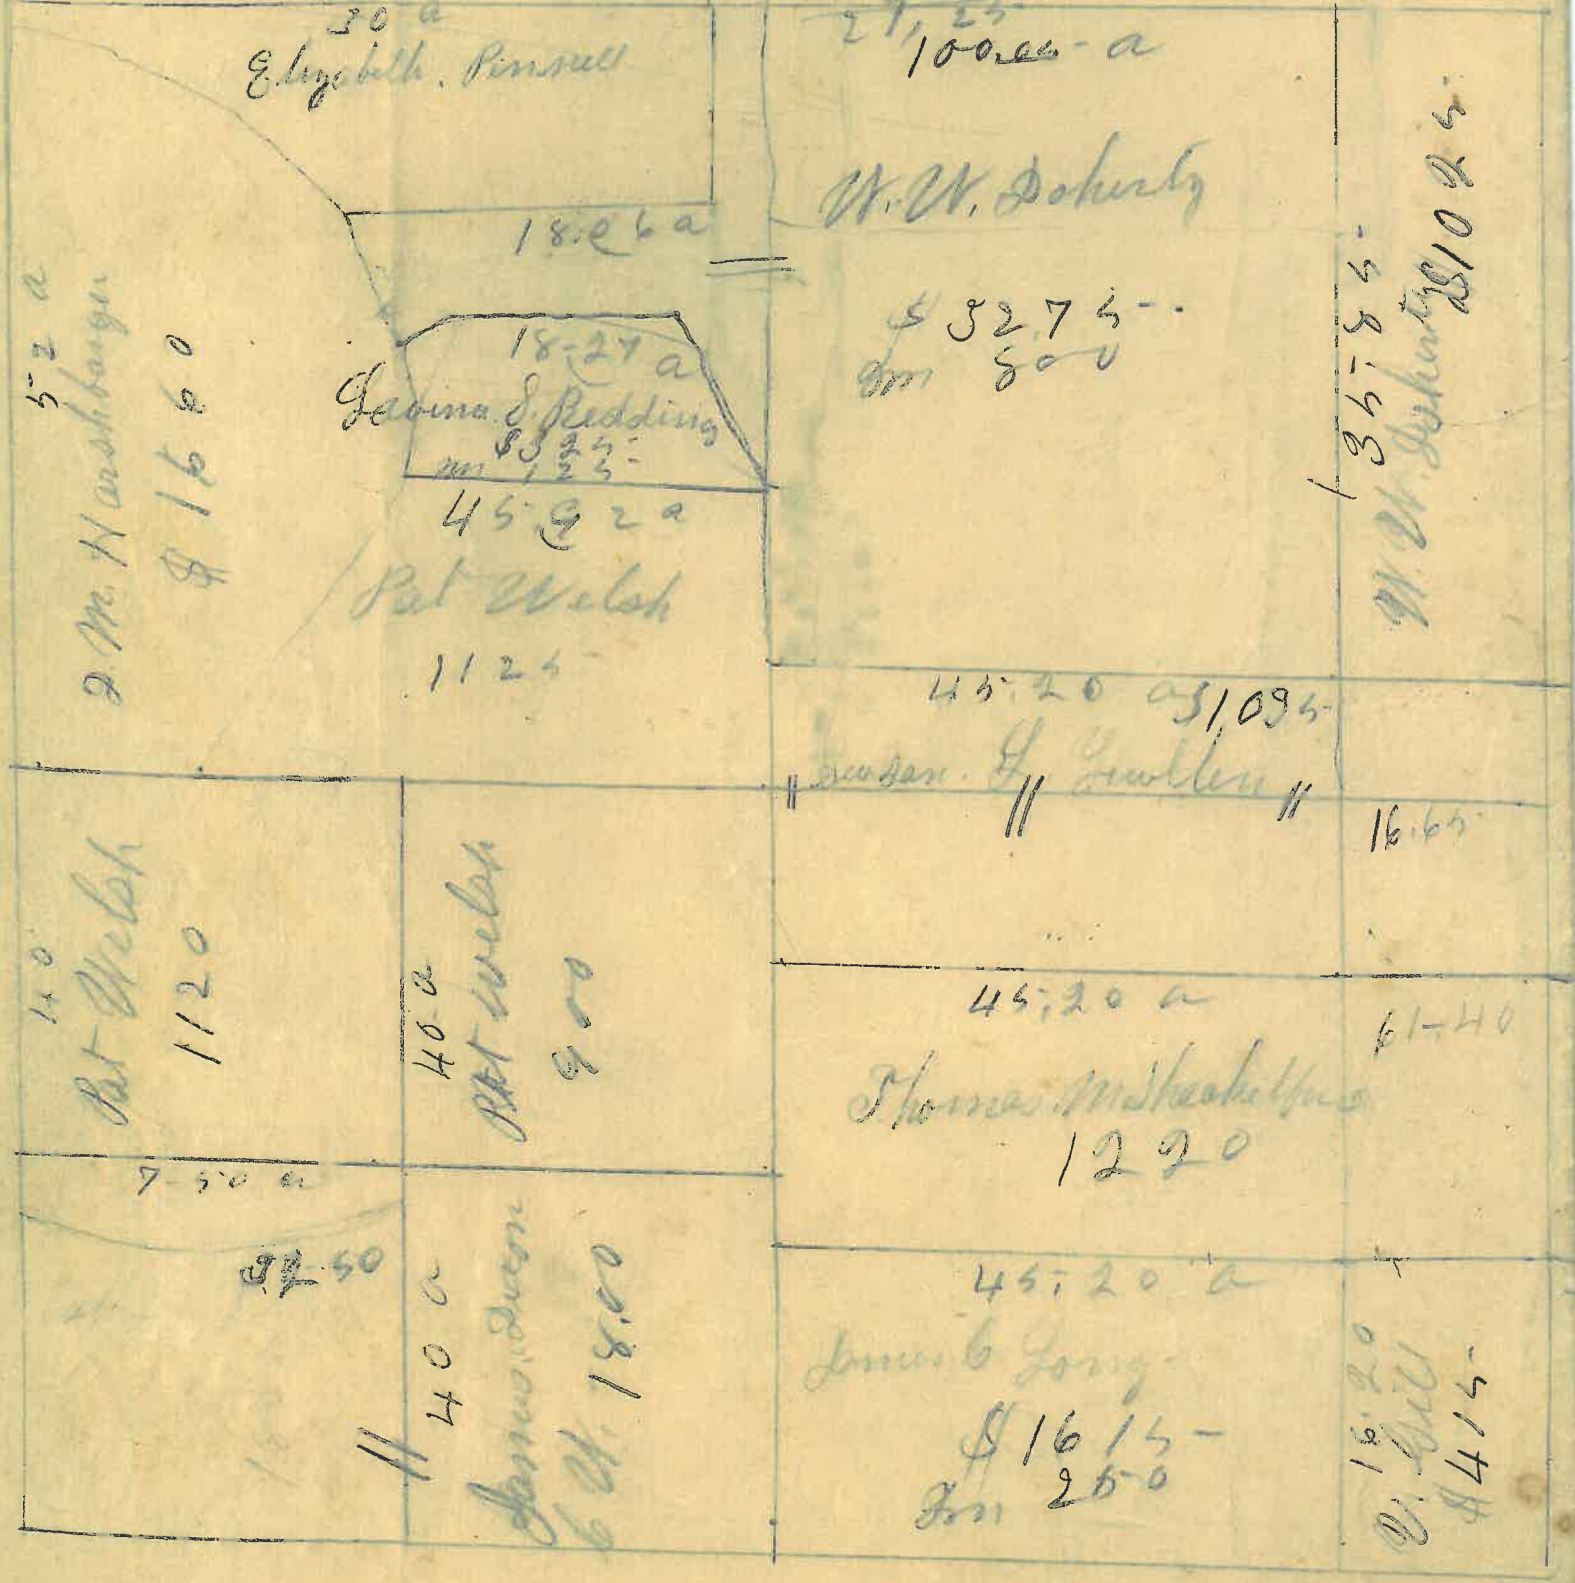 30 a
Elizabeth. Pinnell
100.05 - a
W. W. Doherty
$ 3275-
Im 800
35-85
W. W. Doherty
$1025
18.26 a
52 a
M. Harshbarger
$ 1660
18-27 a
Lavina S. Redding
$325-
im 125-
45.92 a
Pat Welsh
1125
45.20 a $1095-
Susan
16.65
40
Pat Welsh
1120
40-a
Pat Welsh
900
45.20 a
Thomas
1220
61-40
7-50 a
32-50
40 a
James Dixon
18.00
45.20 a
James C Long
$ 1615-
Im 250
16.20
$415-